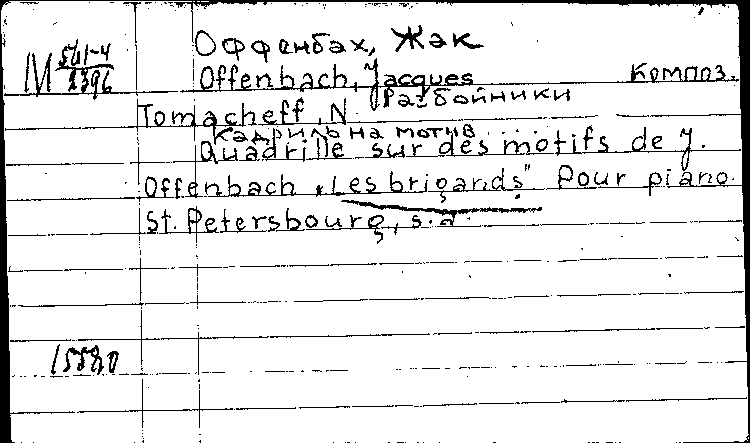 Оффенбах, Жак
М 561-4
2396
Offenbach, Jacques Композ.
Разбойники
Tomacheff, N
Кадриль на мотив....
Quadrille sur des motifs de J.
Offenbach "Les brigands" Pour piano.
St. Petersbourg, s.a.
15580